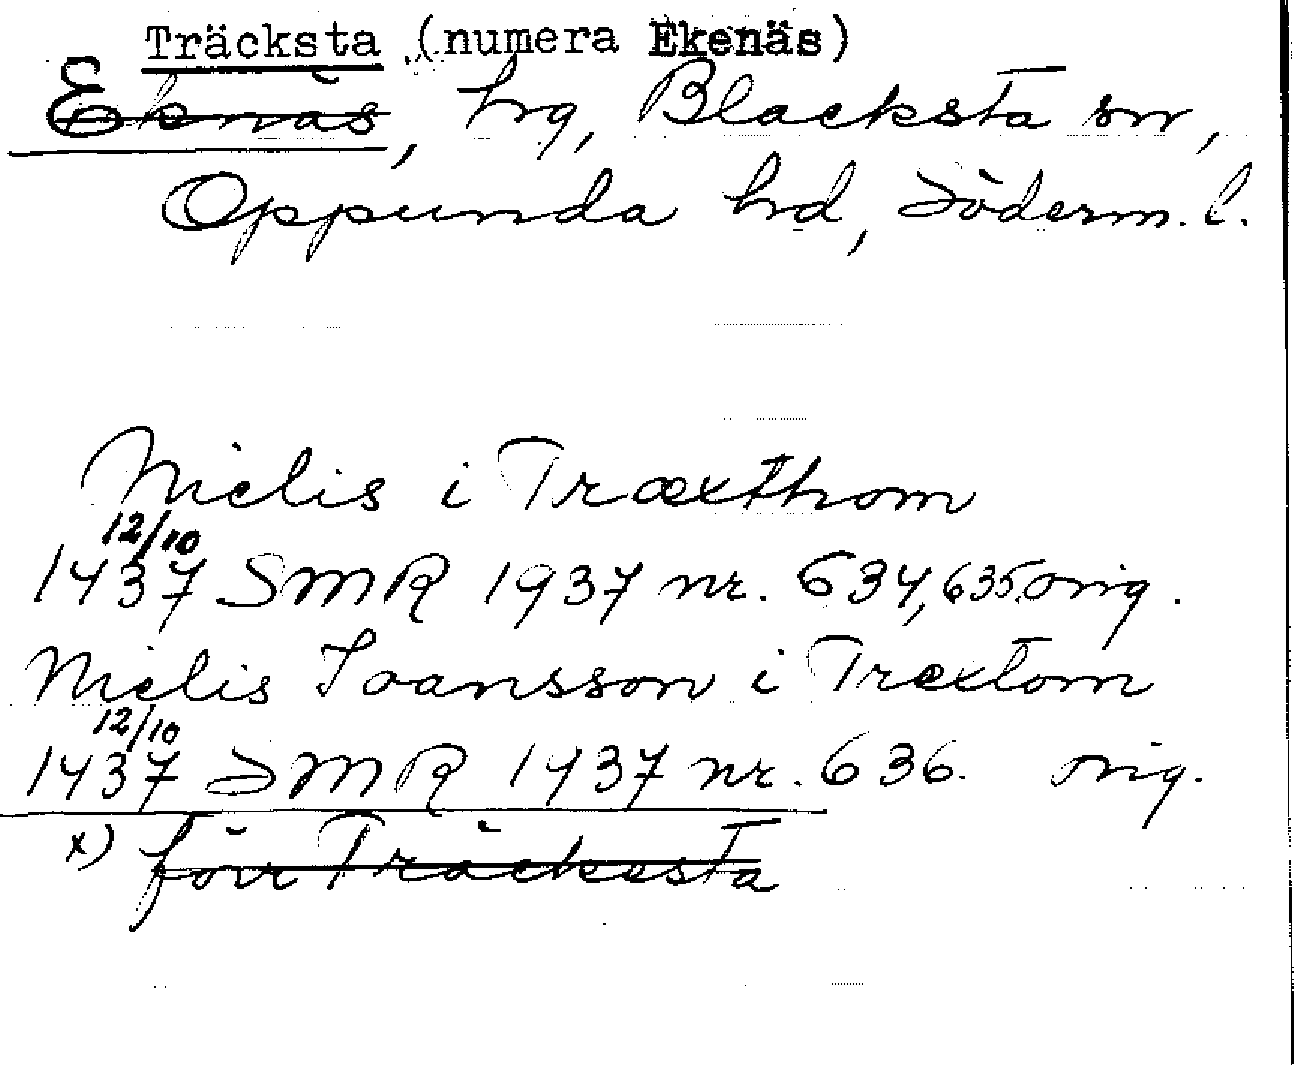 Träcksta (numera Ekenäs)
Eknäs, hg, Blacksta sn,
Oppunda hd, Söderm. l.
Nielis i Træxthom
12/10
1437 SMR 1937 nr. 634, 635, orig.
Nielis Joansson i Trextom
12/10
1437 SMR 1437 nr. 636. orig.
x) förr Träcksta